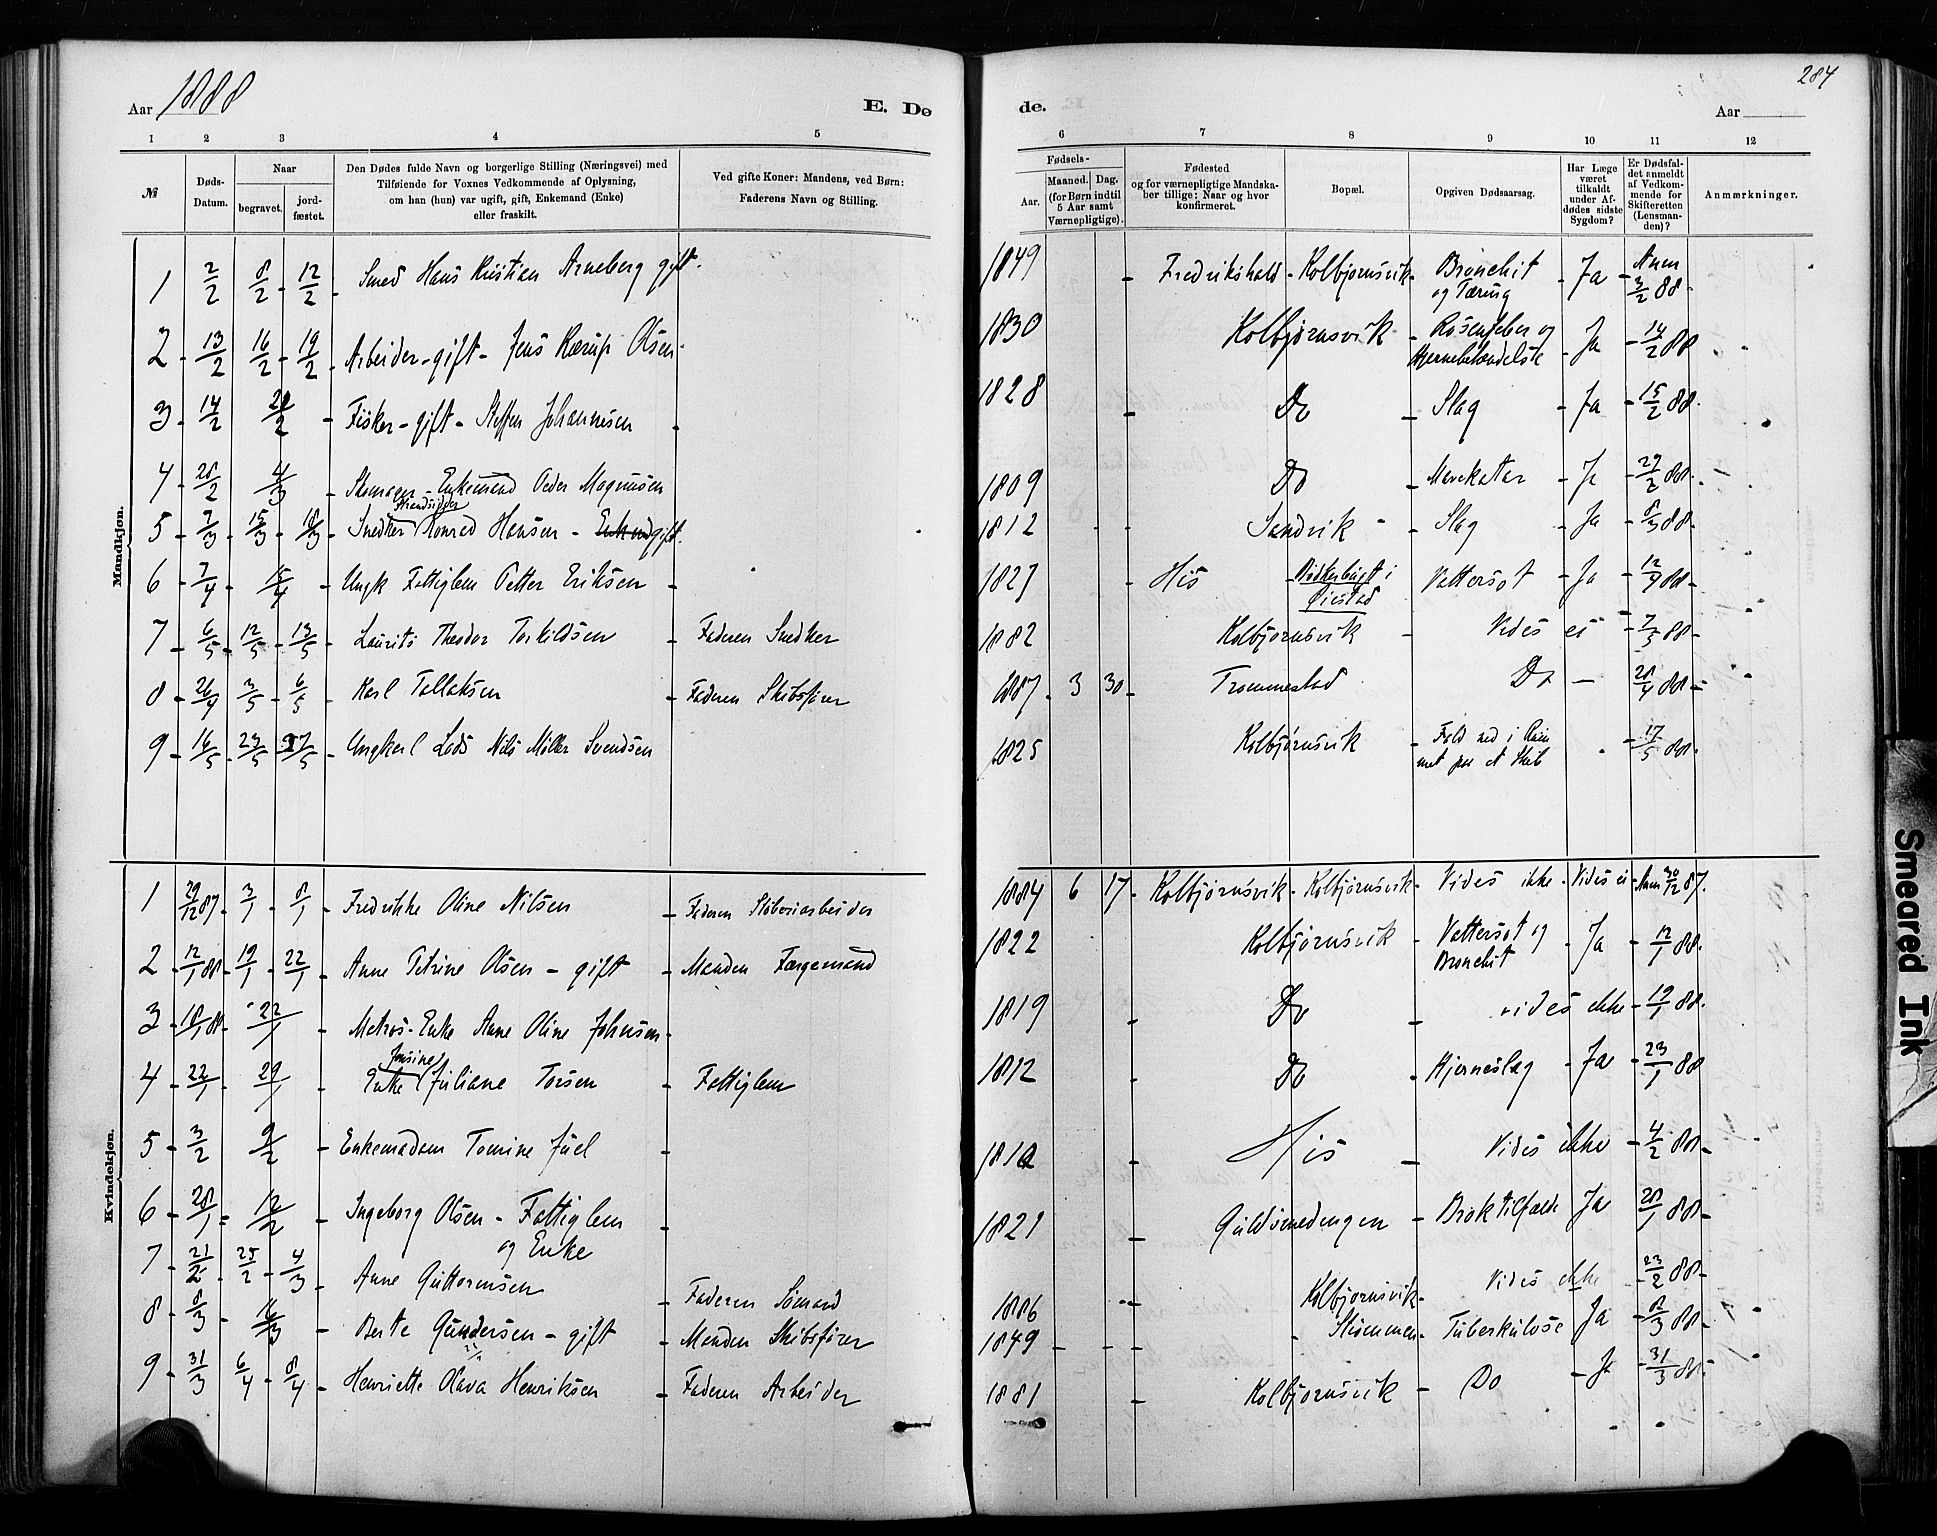 Aar 1888
E. Dø
de.
284
Aar
1 2 3 4 5 6 7 8 9 10 11 12
№
Døds-Datum.
Naar
begravet.
jord-fæstet.
Den Dødes fulde Navn og borgerlige Stilling (Næringsvei) med
Tilføiende for Voxnes Vedkommende af Oplysning,
om han (hun) var ugift, gift, Enkemand (Enke)
eller fraskilt.
Ved gifte Koner: Mandens, ved Børn:
Faderens Navn og Stilling.
Fødsels-
Aar.
Maaned. Dag.
(for Børn indtil
5 Aar samt
Værnepligtige).
Fødested
og for værnepligtige Mandska-
ber tillige: Naar og hvor
konfirmeret.
Bopæl.
Opgiven Dødsaarsag.
Har Læge
været
tilkaldt
under Af-
dødes sidste
Sygdom?
Er Dødsfal-
det anmeldt
af Vedkom-
mende for
Skifteretten
(Lensman-
den)?
Anmærkninger.
Mandkjøn.
1 2/2 8/2 - 12/2 - Smed Hans Kristian Arneberg gift. 1849 - Fredrikshald - Kolbjørnsvik - Bronchit og Tæring - Ja - Anm 3/2 88 -
2 - 13/2 16/2 - 19/2 - Arbeider - gift - Jens Kærup Olsen - 1830 Kolbjørnsvik - Rosenfeber og Hjernebetændelse - Ja - 14/2 88
3 - 14/2 - Fisker - gift - Steffen Johannesen - 1828 - Do - Slag - Ja - 15/2 88 -
4 - 28/2 4/3 - Skomager - Enkemand Peder Magnusen 1809 Do - Ja - 29/2 88 -
5 - 7/3 - 15/3 - 18/3 - Snedker Strandsidder Konrad Hansen - gift. 1812 - Sandvik - Slag - Ja - 8/3 88 -
6 - 7/4 - 15/4 - Ungk Fattiglem Petter Eriksen - 1827 - His - i Øiestad Vattersot - Ja - 12/4 88 -
7 - 6/5 - 12/5 - 13/5 - Laurits Theodor Terkildsen - Faderen Snedker 1882 Kolbjørnsvik - Vides ei - 7/5 88 -
8 - 26/4 - 3/5 - 6/5 - Karl Tallaksen - Faderen Skibsfører 1887 - 3 30 - Trommestad Do - 28/4 88 -
9 - 16/5 - 23/5 - 27/5 - Ungkarl Lods Nils Møller Svendsen 1825 Kolbjørnsvik - Fald ned i Rummet paa et Skib - 17/5 88 -
Kvindekjøn.
1 29/12 87 - 3/1 - 8/1 - Fredrikke Oline Nilsen - Faderen Støberiarbeider 1884 6 17 - Kolbjørnsvik - Kolbjørnsvik - Vides ikke - Vides ei - Anm 30/12 87.
2 - 12/1 88 - 19/1 - 22/1 - Anne Petrine Olsen - gift - Manden Færgemand 1822 Kolbjørnsvik - Vattersot og Bronchit - Ja - 12/1 88 -
3 - 18/1 88 - 22/1 - Matros-Enke Anne Oline Johnsen - 1819 Do - vides ikke - 19/1 88 -
4 - 22/1 - 29/1 - Enke Jensine Juliane Torsen - Fattiglem 1812 Do - Hjerneslag - Ja - 23/1 88
5 - 3/2 9/2 - Enkemadam Tomine Juel - - His - Vides ikke - 4/2 88 -
6 - 28/1 - 12/2 - Ingeborg Olsen - Fattiglem og Enke - 1821 - Guldsmedengen - Broktilfælde Ja 28/1 88 -
7 - 21/2 - 25/2 - 4/3 - Anne Guttormsen - Faderen Sømand 1886 - Kolbjørnsvik - Vides ikke 23/2 88 -
8 - 8/3 - 16/3 - Berte Gundersen - gift - Manden Skibsfører 1849 - Strømmen - Tuberkulose Ja - 8/3 88 -
9 - 31/3 6/4 - 8/4 - Henriette Olava Henriksen - Faderen Arbeider 1881 - Kolbjørnsvik - Do - Ja - 31/3 88 -
Smeared Ink